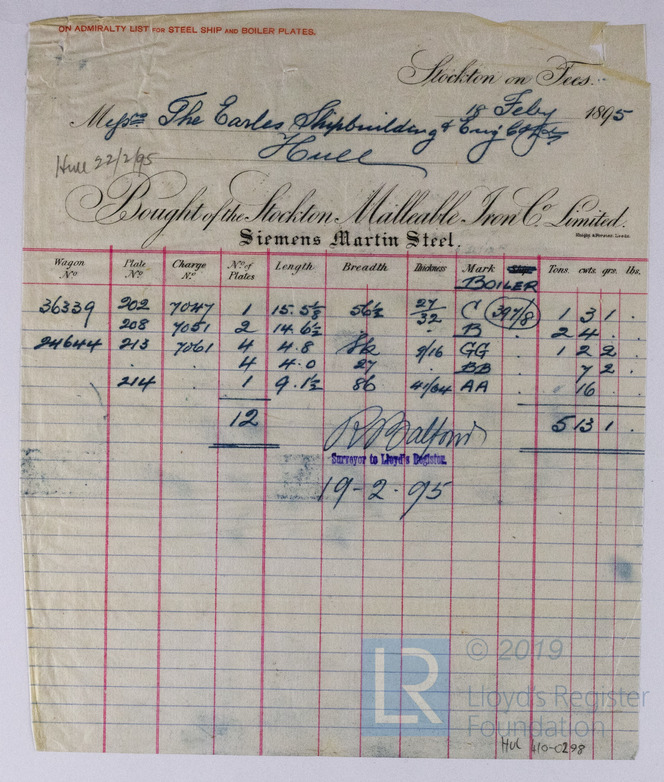 ON ADMIRALTY LIST FOR STEEL SHIP AND BOILER PLATES.
Stockton on Tees.
18 Feby 1895
Messrs The Earles Shipbuilding & Eng Co
Hull
Hull 22/2/95
Bought of the Stockton Malleable Iron Co. Limited.
Siemens Martin Steel.
Wagon No Plate No. Charge No. No. of Plates Length Breadth Thickness Mark Ship Tons. cwts. qrs. lbs.
BOILER
36339 202 7047 1 15.5⅛ 56½ 27/32 C 397/8 1 3 1 .
208 7051 2 14.6½ . . B . 2 4 . .
24644 213 7061 4 4.8 9/16 GG . 1 2 2 .
. . . 4 4.0 27 . BB . 7 2 .
214 . 1 9.1½ 86 41/64 AA . 16 . .
12 5 13 1 .
Surveyor to Lloyd's Register.
19-2-95
LR
© 2019
Lloyd's Register
Foundation
HUL 410-0298